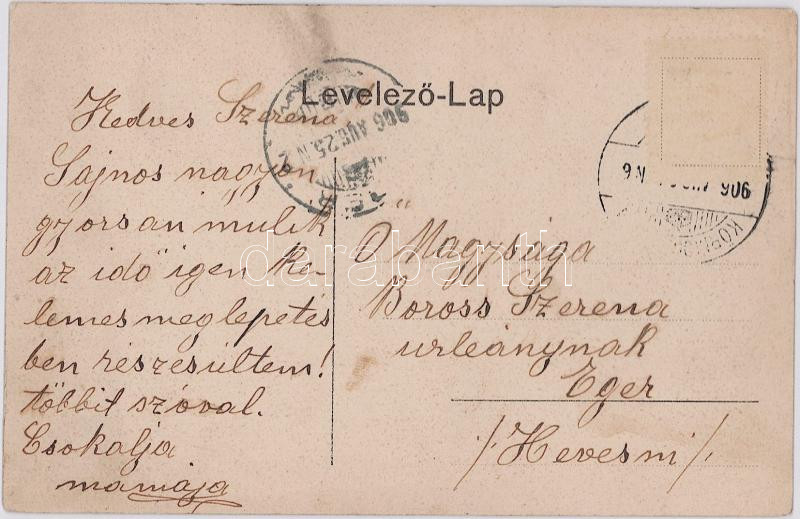 Levelező-Lap
Kedves Szerena
Sajnos nagyon
gyorsan mulik
az idő igen ke-
lemes meglepetés
ben részesültem!
többit szóval.
Csokalja
mamája
Ő Magysága
Boross Szerena
urleánynak
Eger
/Hevesm/
906 AUG. 25. N 2
906
N 9
darabanth